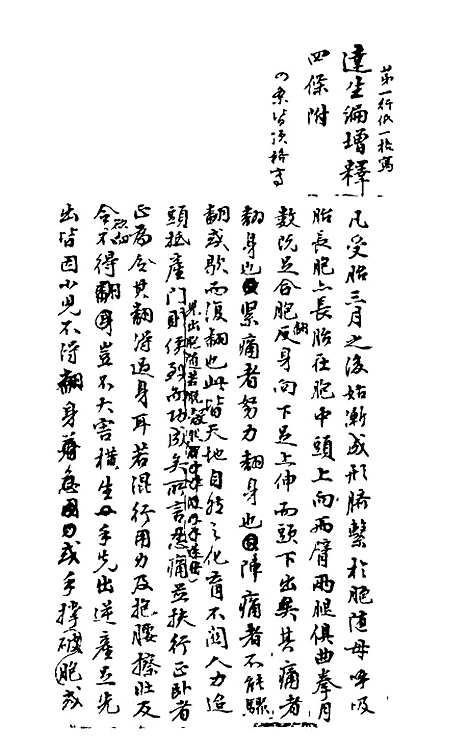 第一行低一格寫
達生編增釋
四條附
四條皆頂格寫
凡受胎三月之後始漸成形臍繫於胞隨母呼吸
胎長胞亦長胎在胞中頭上向而臂兩腿俱曲拳月
數既足合胞翻身向下足上伸而頭下出矣其痛者
翻身也緊痛者努力翻身也陣痛者不能驟
翻或歇而復翻也此皆天地自然之化育不關人力迨
頭抵產門則便到而功成矣所言忍痛並扶行正臥者
正為令其翻得返身耳若混行用力及抱腰擦肚反
令不得翻身豈不大害橫生手先出逆產足先
出皆因小兒不得翻身著急用力或手撐破胞或